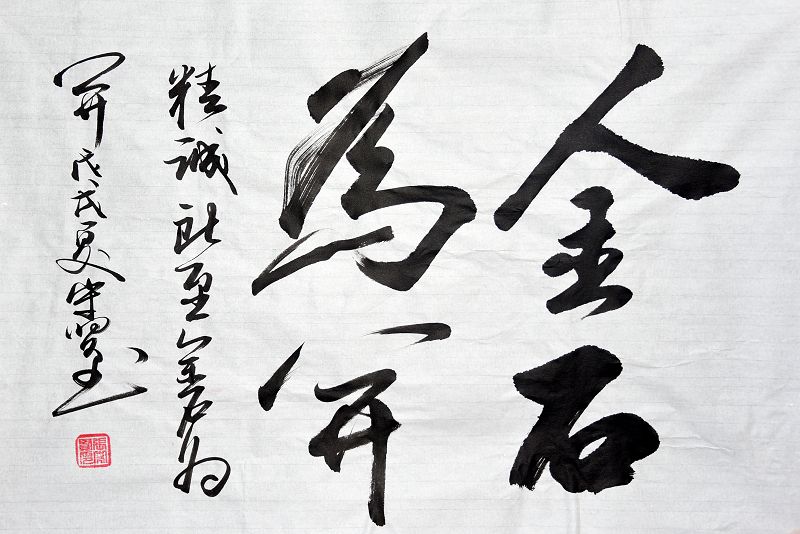 金石
為開
精誠所至金石為
開戊戌夏